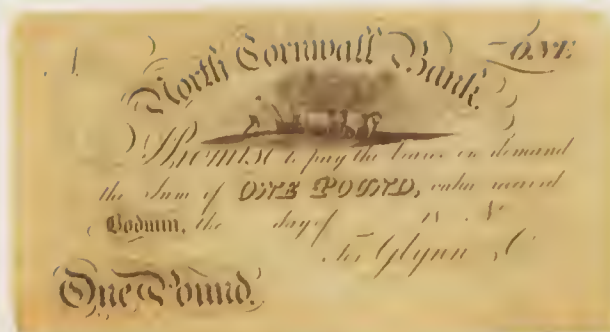 ONE
North Cornwall Bank.
I Promise to pay the bearer on demand
the sum of ONE POUND, value received
Bodmin, the day of 18 N
For Glynn
One Pound.